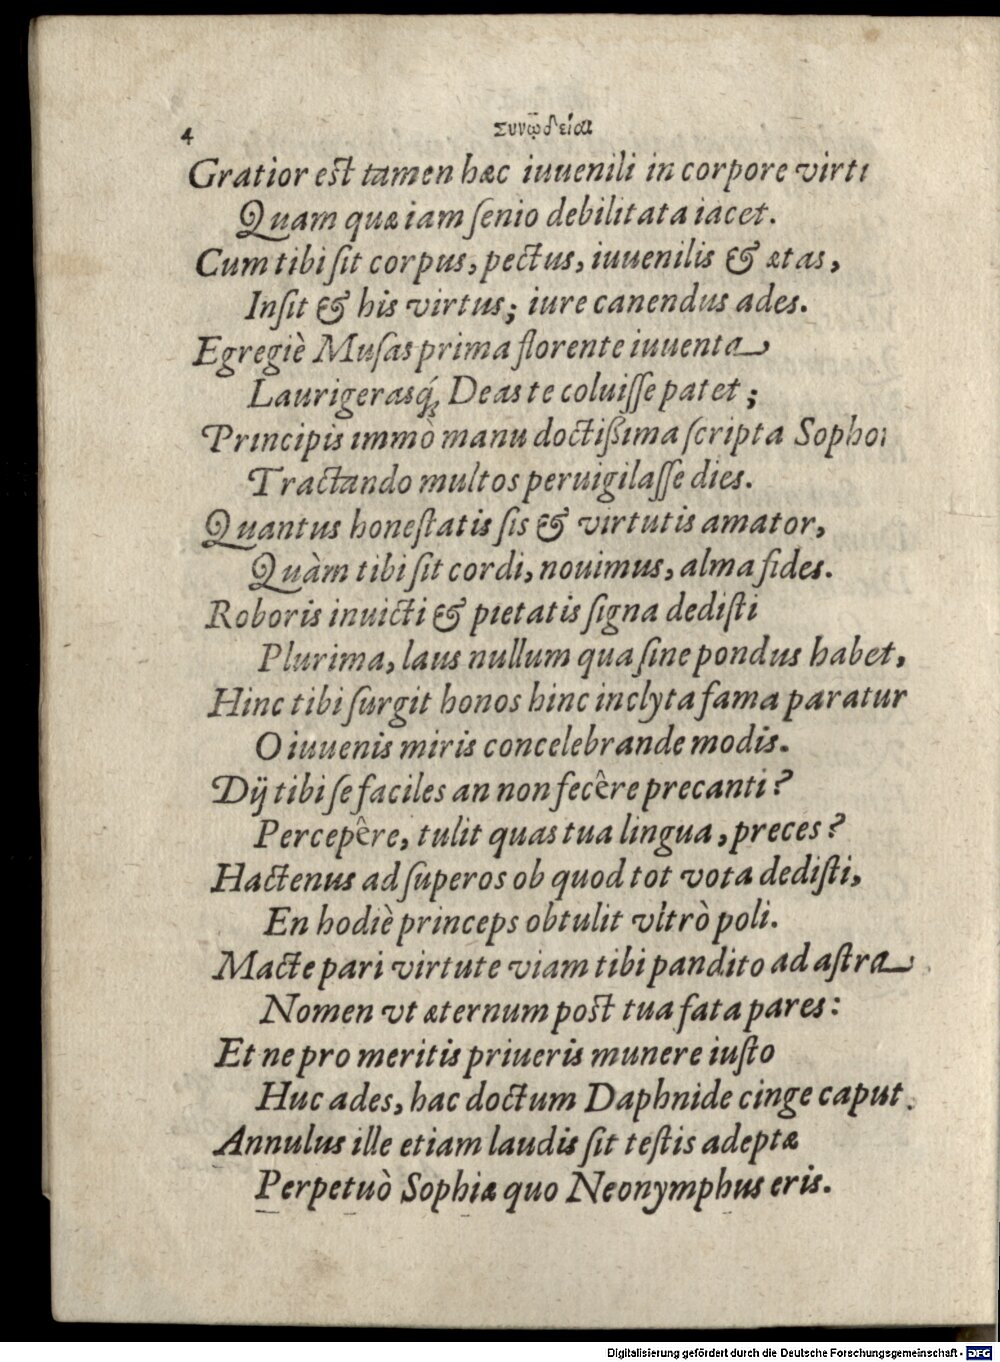 4
Συνῳδεία
Gratior est tamen hæc iuuenili in corpore
Quam quæ iam ſenio debilitata iacet.
Cum tibi ſit corpus, pectus, iuuenilis & ætas,
Inſit & his virtus; iure canendus ades.
Egregiè Muſas prima florente iuuenta
Laurigerasq́; Deas te coluiſſe patet;
Principis immò manu doctißima ſcripta
Tractando multos peruigilaſſe dies.
Quantus honeſtatis ſis & virtutis amator,
Quàm tibi ſit cordi, nouimus, alma fides.
Roboris inuicti & pietatis ſigna dediſti
Plurima, laus nullum qua ſine pondus habet,
Hinc tibi ſurgit honos hinc inclyta fama paratur
O iuuenis miris concelebrande modis.
Dij tibi ſe faciles an non fecêre precanti?
Percepêre, tulit quas tua lingua, preces?
Hactenus ad ſuperos ob quod tot vota dediſti,
En hodiè princeps obtulit vltrò poli.
Macte pari virtute viam tibi pandito ad aſtra
Nomen vt æternum post tua fata pares:
Et ne pro meritis priueris munere iuſto
Huc ades, hac doctum Daphnide cinge caput.
Annulus ille etiam laudis ſit teſtis adeptæ
Perpetuò Sophiæ quo Neonymphus eris.
Digitalisierung gefördert durch die Deutsche Forschungsgemeinschaft - DFG